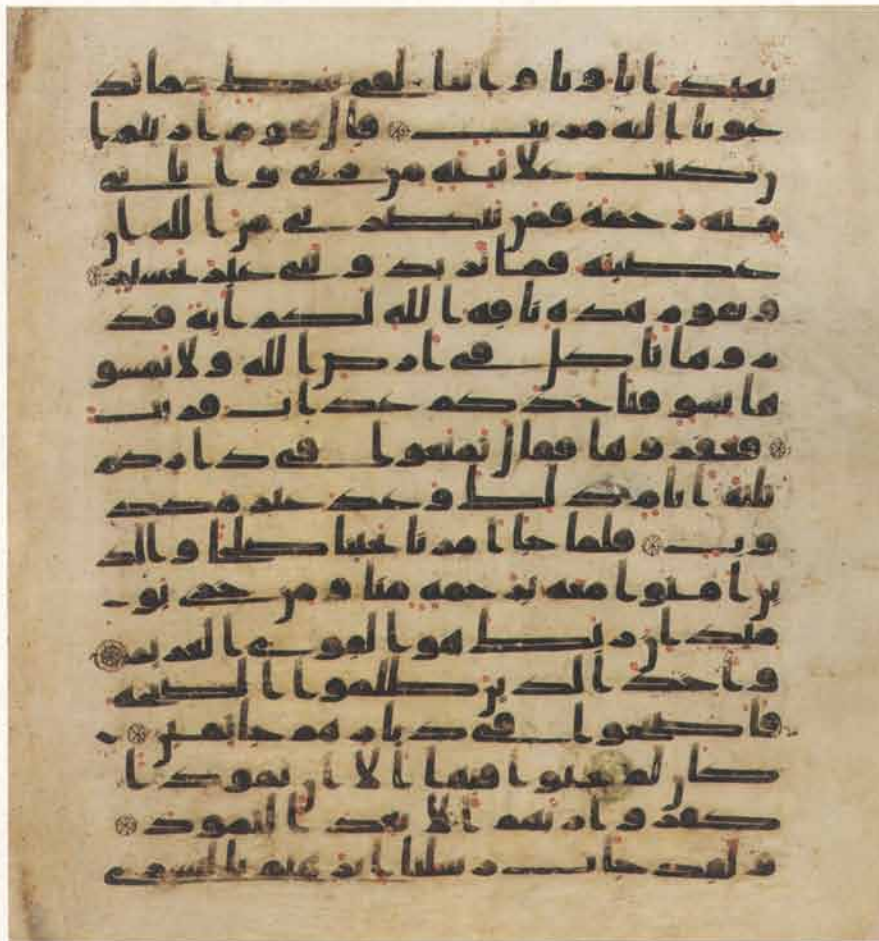 يعبد اباونا واننا لفي شك مما تد
عونا اليه مريب قال يقوم ارايتم ا
ن كنت على بينة من ربي واتاني
منه رحمة فمن ينصرني من الله ان
عصيته فما تزيدونني غير تخسير
ويقوم هذه ناقة الله لكم اية فذ
روها تاكل في ارض الله ولا تمسو
ها بسو فياخذكم عذاب قريب
فعقروها فقال تمتعوا في داركم
ثلثة ايام ذلك وعد غير مكذ
وب فلما جا امرنا نجينا صلحا والذ
ين امنوا معه برحمة منا ومن خزي يو
مئذ ان ربك هو القوي العزيز
واخذ الذين ظلموا الصيحة
فاصبحوا في ديارهم جاثمين
كان لم يغنوا فيها الا ان ثمودا
كفروا ربهم الا بعدا لثمود
ولقد جات رسلنا ابرهيم بالبشرى